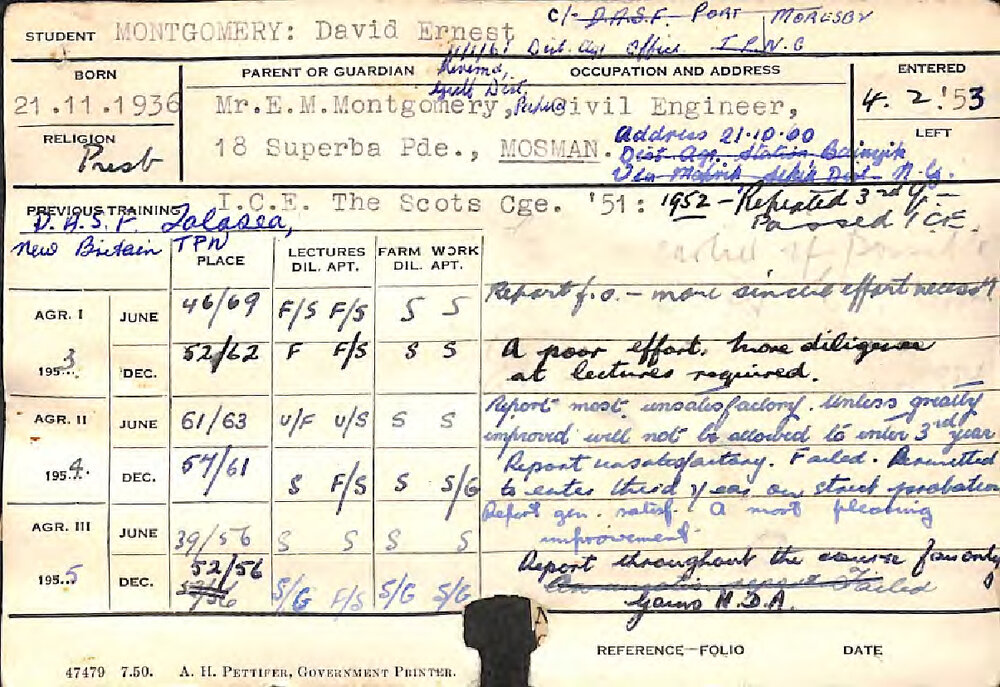 C/- D.A.S.F. PORT MORESBY
STUDENT MONTGOMERY: David Ernest
Dist. Ag. Office T.P.N.G
BORN PARENT OR GUARDIAN OCCUPATION AND ADDRESS ENTERED
Kerema, Gulf Dist. Papua
21.11.1936 Mr.E.M.Montgomery, Civil Engineer, 4.2.'53
RELIGION Presb
18 Superba Pde., MOSMAN.
Address 21.10.60
Dist. Agr. Station Bainyik
Via Maprik Sepik Dist. N.G.
LEFT
PREVIOUS TRAINING I.C.E. The Scots Cge. '51: 1952 - Repeated 3rd Yr -
Passed ICE.
D.A.S.F. Talasea,
New Britain TPN
PLACE LECTURES DIL. APT. FARM WORK DIL. APT.
AGR. I JUNE 46/69 F/S F/S S S Report f.o. - more sincere effort necess'y
1953 DEC. 52/62 F F/S S S A poor effort. More diligence
at lectures required.
AGR. II JUNE 61/63 U/F U/S S S Report most unsatisfactory. Unless greatly
improved will not be allowed to enter 3rd year
1954. DEC. 57/61 S F/S S S/G Report unsatisfactory. Failed. Permitted
to enter third year on strict probation
AGR. III JUNE 39/56 S S S S Report gen. satisf. A most pleasing
improvement
1955 DEC. 52/56 S/G F/S S/G S/G Report throughout the course fair only
Failed
Gains H.D.A.
REFERENCE-FOLIO DATE
47479 7.50. A. H. PETTIFER, GOVERNMENT PRINTER.